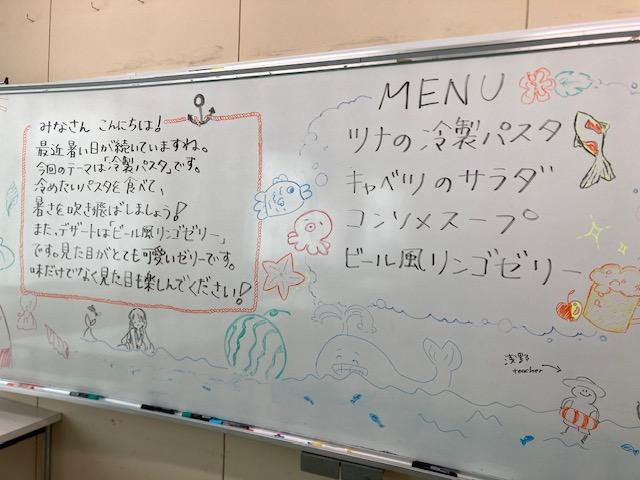 みなさん こんにちは!
最近暑い日が続いていますね。
今回のテーマは「冷製パスタ」です。
冷めたいパスタを食べて、
暑さを吹き飛ばしましょう!
また、デザートは「ビール風リンゴゼリー」
です。見た目がとても可愛いゼリーです。
味だけでなく見た目も楽しんでください!
MENU
ツナの冷製パスタ
キャベツのサラダ
コンソメスープ
ビール風リンゴゼリー
浅野
teacher